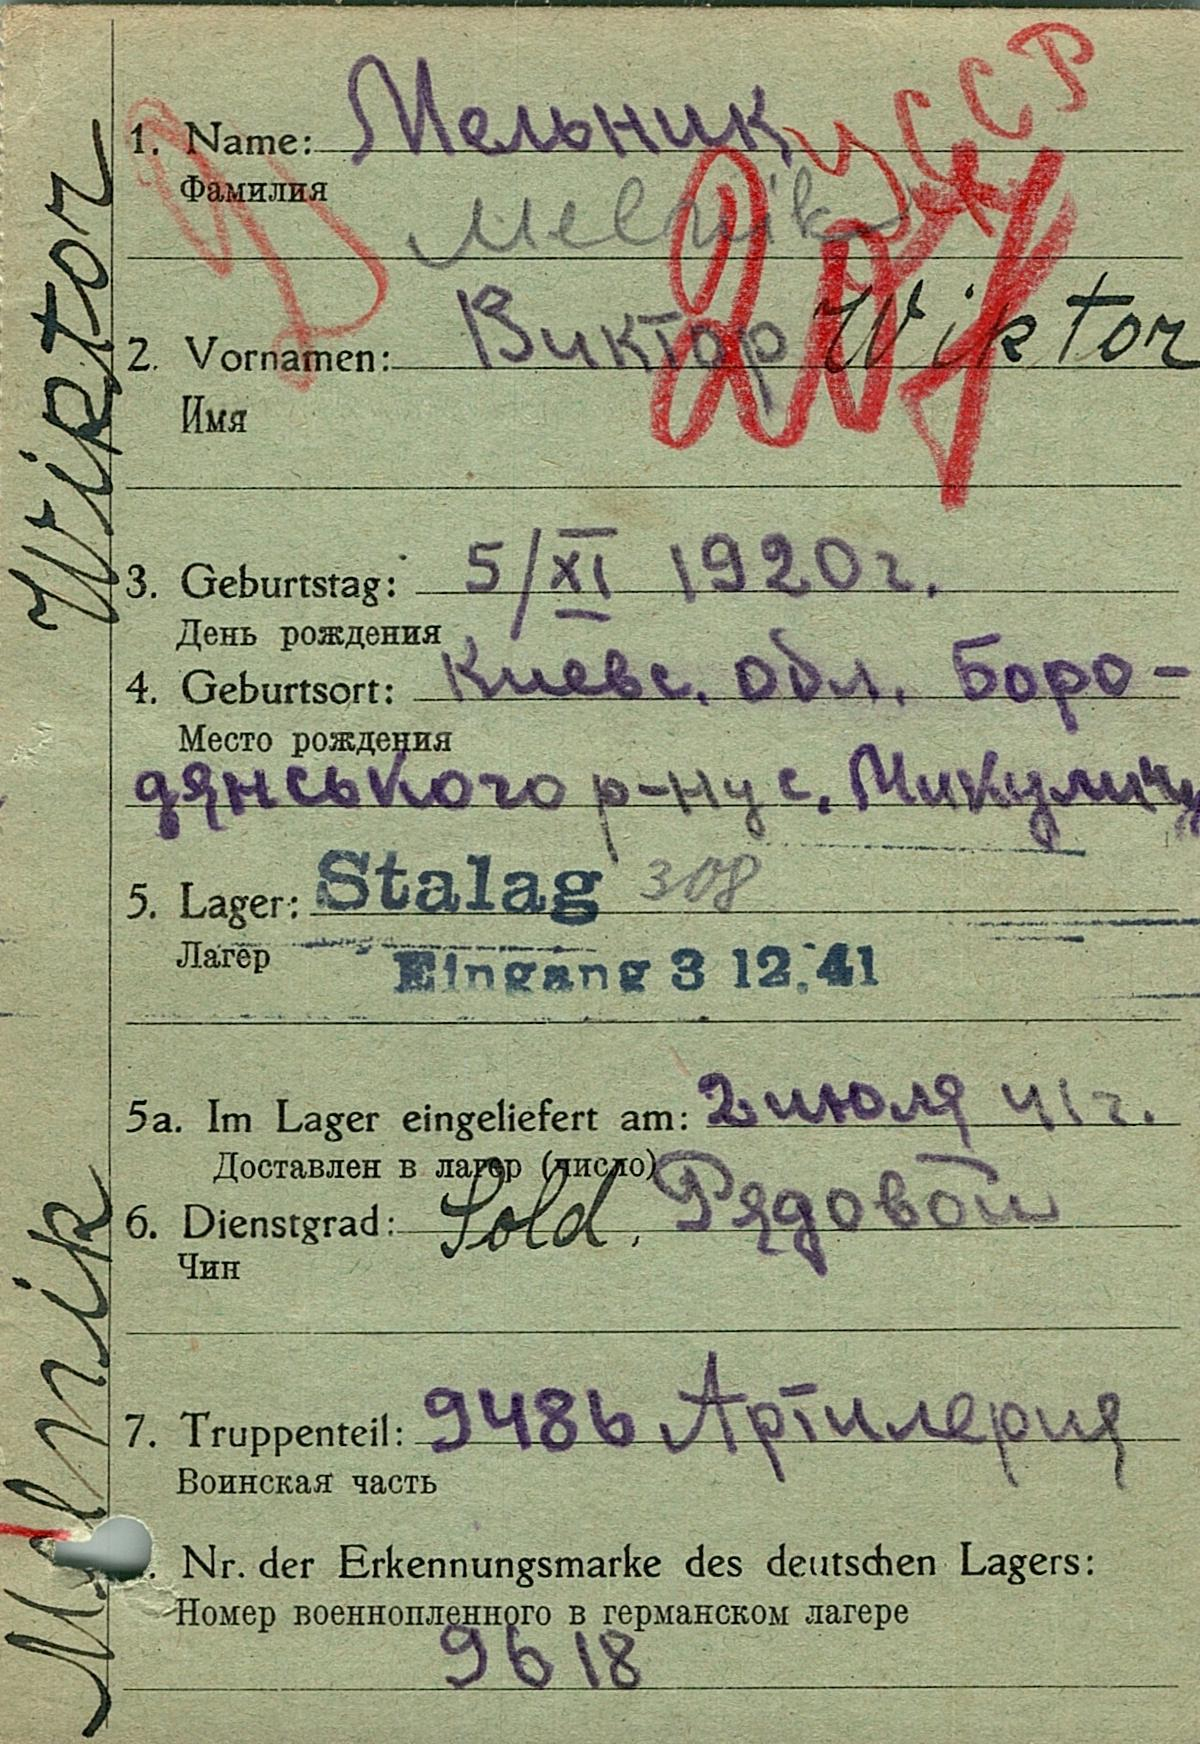 УССР
1. Name: Мельник
Фамилия
Melnik
207
2. Vornamen: Виктор Wiktor
Имя
3. Geburtstag: 5/XI 1920 г.
День рождения
4. Geburtsort: Киевс. обл. Боро-
Место рождения
дянського р-ну с. Микуличи
5. Lager: Stalag 308
Лагер
Eingang 3 12. 41
5a. Im Lager eingeliefert am: 2 июля 41 г.
Доставлен в лагер (число)
6. Dienstgrad: Sold. Рядовой
Чин
7. Truppenteil: 948б Артилерия
Воинская часть
Nr. der Erkennungsmarke des deutschen Lagers:
Номер военнопленного в германском лагере
9618
Melnik Wiktor